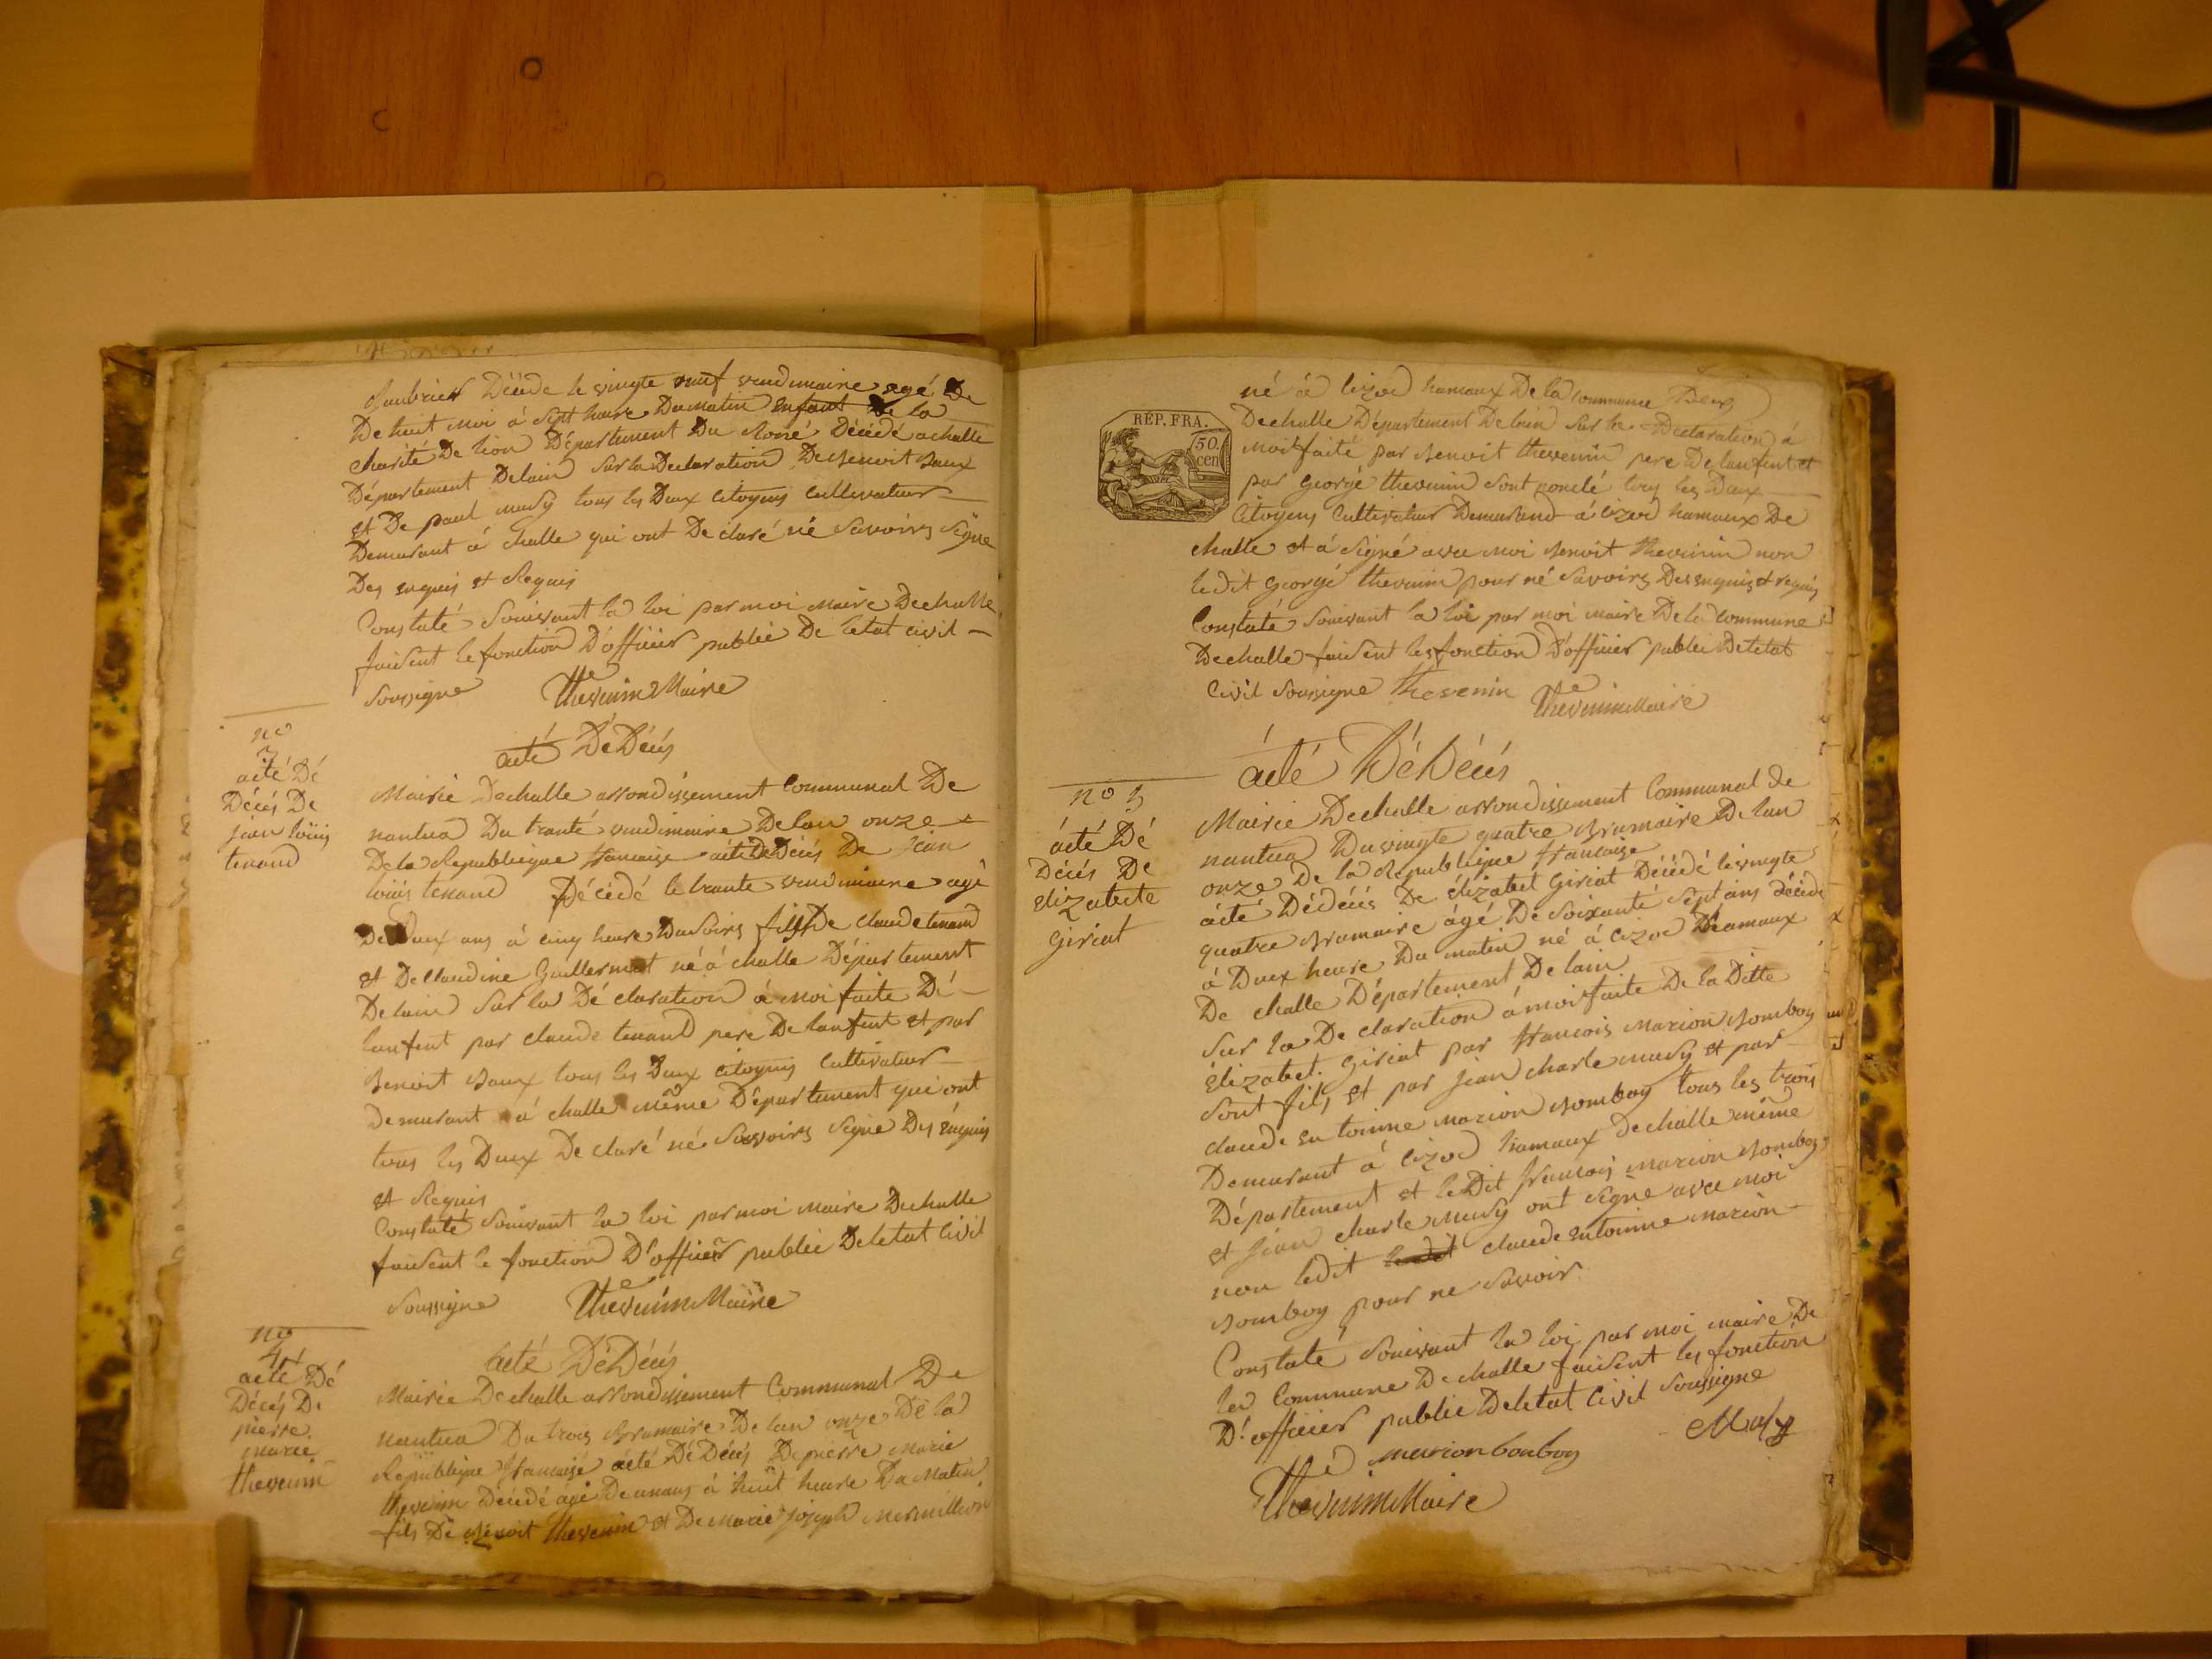 Décédé le vingte neuf vendimaire agé De
De huit moi á sept heure Du matin enfant De la
charité De lion Département Du Roné Décédé a challe
Département Delain sur la Declaration De Benoit Baux
et De paul musy tous les Deux citoyens cultivateur
Demurant á challe qui ont De claré né savoirs signe
Des enquis et Requis
Constaté souivant la loi par moi maire Dechalle
faisent le fonction D'officier publié De letat civil
soussigne Thevenin Maire
acté DéDécés
no
3
acté Dé
Décés De
jean loüis
tenand
Mairie Dechalle arrondissement Communal De
nantua Du tranté vendimaire Delan onze
De la Republieque francaise acté DéDécés De jean
loüis tenand Décédé le trante vendimiaire agé
De Deux ans á cinq heure Du soirs fils De claude tenand
et De claudine Guillermet né á challe Département
Delain sur la Dé claration á moi faite Dé
lanfent par claude tenand pere De lanfent et par
Benoit Baux tous les Deux citoyens cultivateur
demurant á challe même Département qui ont
tous les Deux De claré né savoirs signe Des enquis
et Requis
Constaté souivant la loi par moi maire Dechalle
faisent le fonction D'officier publié De letat civil
soussigne Thevenin Maire
acté DéDécés
no
4
acté Dé
Décés De
pierre
marie
thevenin
Mairie Dechalle arrondissement Communal De
nantua Du trois Brumaire De lan onze De la
Republieque francaise acté DéDécés De pierre marie
thevenin Décédé agé De unans á huit heure Du matin
fils De Benoit thevenin et De marie joseph mermillion
né á cizod hamaux De la commune
Dechalle Département De lain sur la Declaration á
RÉP. FRA.
50.
cen
moi faité par Benoit thevenin pere De lanfent et
par georgé thevenin sont tous les Deux
Citoyens Cultivateur Demurand á cizod hamaux De
challe et á signé avec moi Benoit thevenin non
ledit georgé thevenin pour né savoirs Des enquis et requis
Constaté souivant la loi par moi maire De la commune
Dechalle faisent les fonction D'officier publié De letat
civil soussigne thevenin Thevenin Maire
acté DéDécés
no 5
acté Dé
Décés De
elizabete
giriat
Mairie Dechalle arrondissement Communal de
nantua Du vingte quatre Brumaire De lan
onze De la Republieque francaise
acté DéDécés De élizabet giriat Décédé le vingte
quatre Brumaire ágé De soixanté sept ans décédé
á Deux heure Du matin né á cizod hamaux
De challe Département De lain
sur la De claration á moi faite De la Ditte
élizabet giriat par francois marion Bomboy
sont fils et par jean charle musy et par
claude en toinne marion Bomboy tous les trois
Demurant á cizod hamaux dechalle même
Département et le Dit francois marion Bomboy
et jean charle musy ont signe avec moi
non ledit claude entoinne marion
Bomboy pour ne savoir
Constaté souivant la loi par moi maire De
la Commune De challe faisent les fonction
D'officier publié De letat civil soussigne
marion bonboy
Thevenin Maire